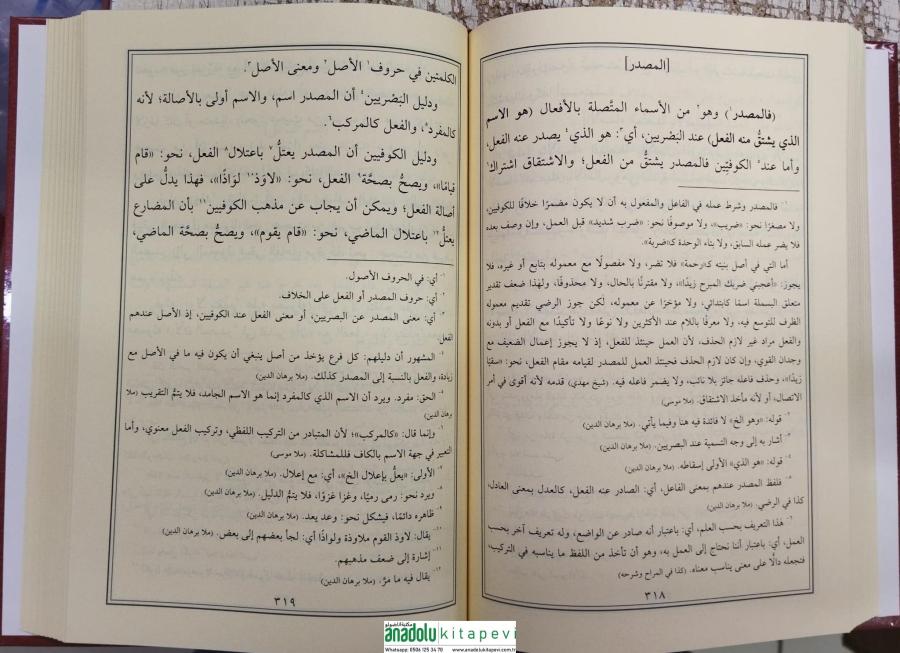 [المصدر]
(فالمصدر١) وهو٢ من الأسماء المتَّصلة بالأفعال (هو الاسم
الذي يشتقُّ منه الفعل) عند البَصْريين، أي٣: هو الذي٤ يصدر عنه الفعل،
وأما عند٥ الكوفيّين فالمصدر يشتقُّ من الفعل؛ والاشتقاق اشتراك٦
١- فالمصدر وشرط عمله في الفاعل والمفعول به أن لا يكون مضمرًا خلافًا للكوفيين،
ولا مصغرًا نحو: «ضريب»، ولا موصوفًا نحو: «ضرب شديد» قبل العمل، وإن وصف بعده
فلا يضر عمله السابق، ولا بتاء الوحدة كـ«ضربة».
أما التي في أصل بنيته كـ«رحمة» فلا تضر، ولا مفصولًا مع معموله بتابع أو غيره، فلا
يجوز: «أعجبني ضربك المبرح زيدًا»، ولا مقترنًا بالحال، ولا محذوفًا، ولهذا ضعف تقدير
متعلق البسملة اسمًا كابتدائي، ولا مؤخرًا عن معموله، لكن جوز الرضي تقديم معموله
الظرف للتوسع فيه، ولا معرفًا باللام عند الأكثرين ولا نوعًا ولا تأكيدًا مع الفعل أو بدونه
والفعل مراد غير لازم الحذف، لأن العمل حينئذ للفعل، إذ لا يجوز إعمال الضعيف مع
وجدان القوي، وإن كان لازم الحذف فحينئذ العمل للمصدر لقيامه مقام الفعل، نحو: «سقيًا
زيدًا»، وحذف فاعله جائز بلا نائب، ولا يضمر فاعله فيه. (شيخ مهدي) قدمه لأنه أقوى في أمر
الاتصال، أو لأنه مأخذ الاشتقاق. (ملا موسى)
٢- قوله: «وهو الخ» لا فائدة فيه هنا وفيما يأتي. (ملا برهان الدين)
٣- أشار به إلى وجه التسمية عند البصريين. (ملا برهان الدين)
٤- قوله: «هو الذي» الأولى إسقاطه. (ملا برهان الدين)
٥- فلفظ المصدر عندهم بمعنى الفاعل، أي: الصادر عنه الفعل، كالعدل بمعنى العادل،
كذا في الرضي. (ملا برهان الدين)
٦- هذا التعريف بحسب العلم، أي: باعتبار أنه صادر عن الواضع، وله تعريف آخر بحسب
العمل، أي: باعتبار أننا نحتاج إلى العمل به، وهو أن تأخذ من اللفظ ما يناسبه في التركيب،
فتجعله دالًّا على معنى يناسب معناه. (كذا في المراح وشرحه)
٣١٨
الكلمتين في حروف١ الأصل٢ ومعنى الأصل٣.
ودليل البَصْريين٤ أن المصدر اسم، والاسم أولى بالأصالة؛ لأنه
كالمفرد٥، والفعل كالمركب٦.
ودليل الكوفيين أن المصدر يعتلُّ٧ باعتلال٨ الفعل، نحو: «قام
قيامًا»، ويصحُّ بصحَّة٩ الفعل، نحو: «لاوَذَ١٠ لوَاذًا»، فهذا يدلُّ على
أصالة الفعل؛ ويمكن أن يجاب عن مذهب الكوفيين١١ بأن المضارع
يعتلُّ١٢ باعتلال الماضي، نحو: «قام يقوم»، ويصحُّ بصحَّة الماضي،
١- أي: في الحروف الأصول.
٢- أي: حروف المصدر أو الفعل على الخلاف.
٣- أي: معنى المصدر عن البصريين، أو معنى الفعل عند الكوفيين، إذ الأصل عندهم
الفعل.
٤- المشهور أن دليلهم: كل فرع يؤخذ من أصل ينبغي أن يكون فيه ما في الأصل مع
زيادة، والفعل بالنسبة إلى المصدر كذلك. (ملا برهان الدين)
٥- الحق: مفرد. ويرد أن الاسم الذي كالمفرد إنما هو الاسم الجامد، فلا يتمُّ التقريب (ملا
برهان الدين)
٦- وإنما قال: «كالمركب»؛ لأن المتبادر من التركيب اللفظي، وتركيب الفعل معنوي، وأما
التعبير في جهة الاسم بالكاف فللمشاكلة. (ملا موسى)
٧- الأولى: «يعلُّ بإعلال الخ»، أي: مع إعلال. (ملا برهان الدين)
٨- ويرد نحو: رمى رميًا، وغزا غزوًا، فلا يتمُّ الدليل. (ملا برهان الدين)
٩- ظاهره دائمًا، فيشكل نحو: وعد يعد. (ملا برهان الدين)
١٠- يقال: لاوذ القوم ملاوذة ولواذًا أي: لجأ بعضهم إلى بعض. (ملا برهان الدين)
١١- إشارة إلى ضعف مذهبهم.
١٢- يقال فيه ما مرَّ. (ملا برهان الدين)
٣١٩
anadolu kitapevi
Whatsapp: 0506 125 34 78 www.anadolukitapevi.com.tr